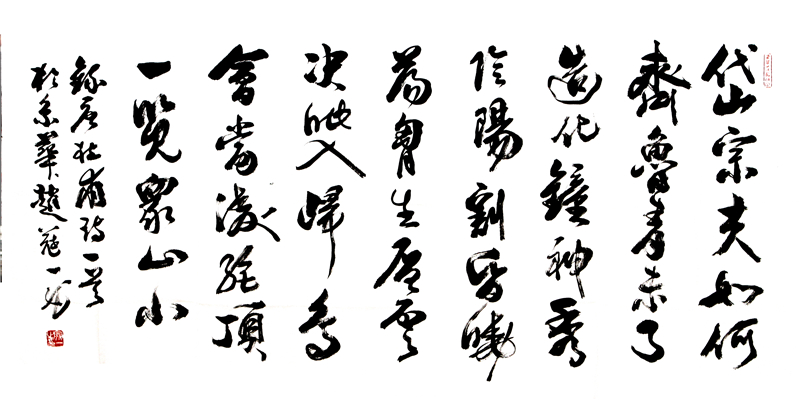 岱宗夫如何
齊魯青未了
造化鐘神秀
陰陽割昏曉
蕩胷生層雲
決眥入歸鳥
會當凌絕頂
一覽眾山小
錄唐杜甫詩一首
於京華趙冠一書